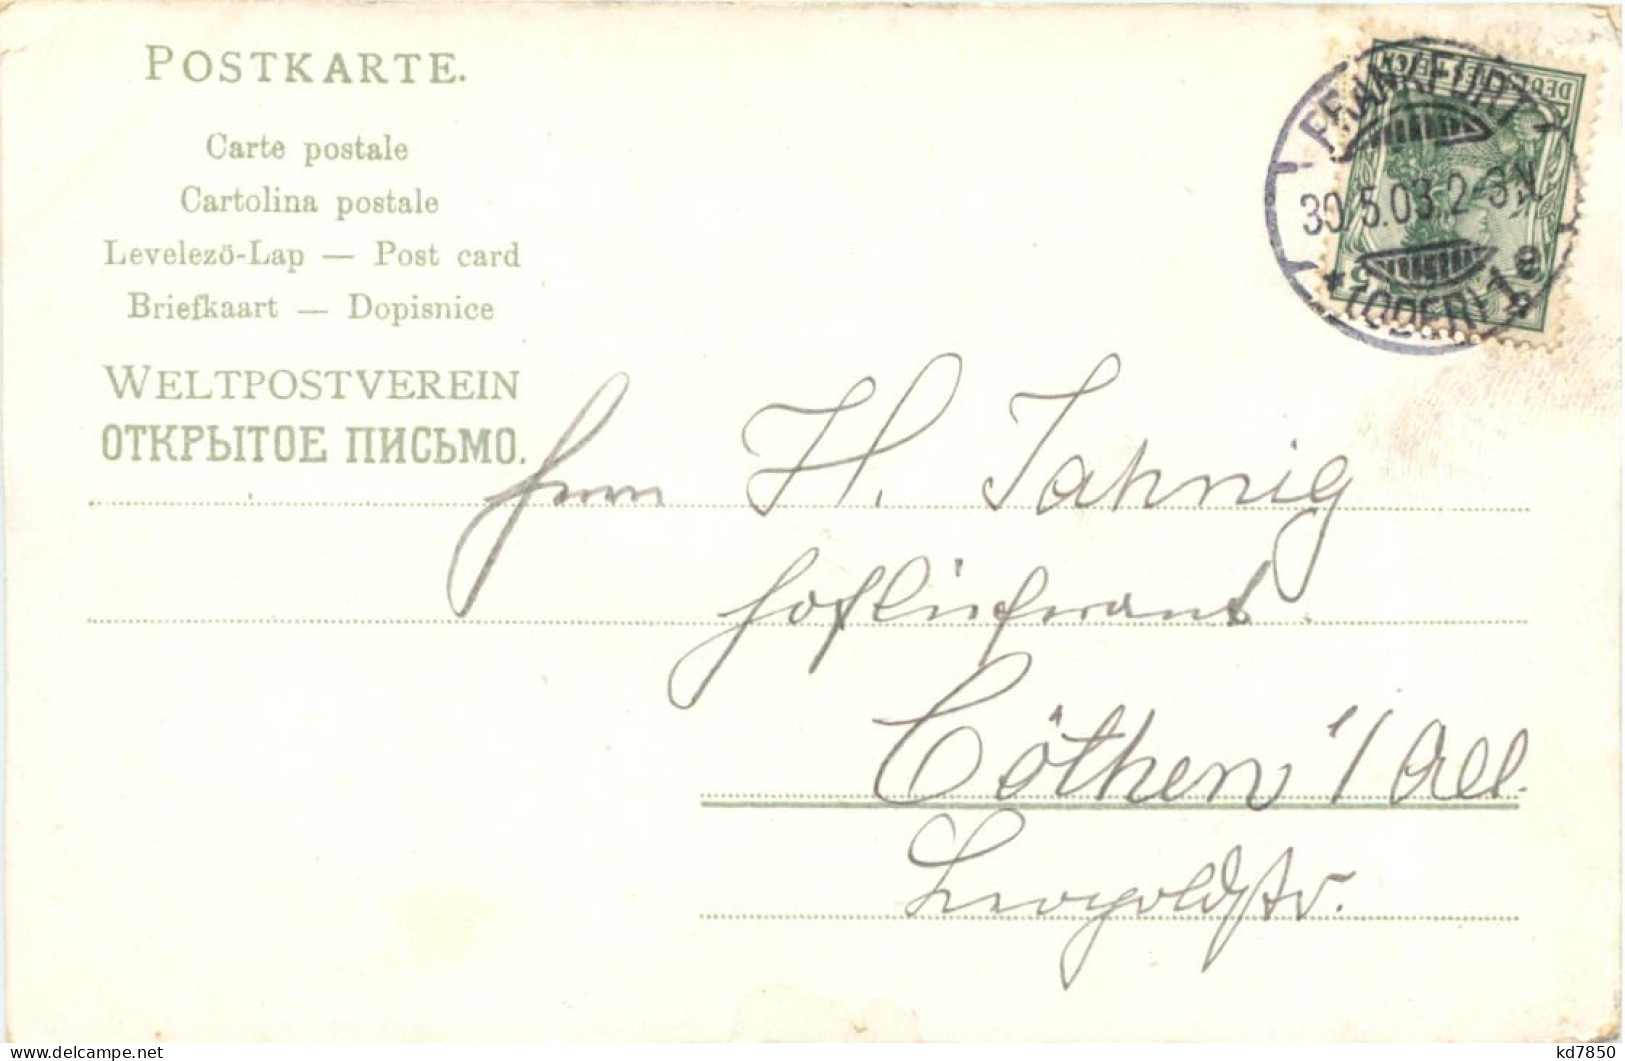 POSTKARTE.
Carte postale
Cartolina postale
Levelező-Lap — Post card
Briefkaart — Dopisnice
WELTPOSTVEREIN
ОТКРЫТОЕ ПИСЬМО.
FRANKFURT
30.5.03.2-3N.
* (ODER) 1 e
5
Herrn H. Jahnig
Hoflieferant.
Cöthen i/ All.
Leopoldstr.
kd7850